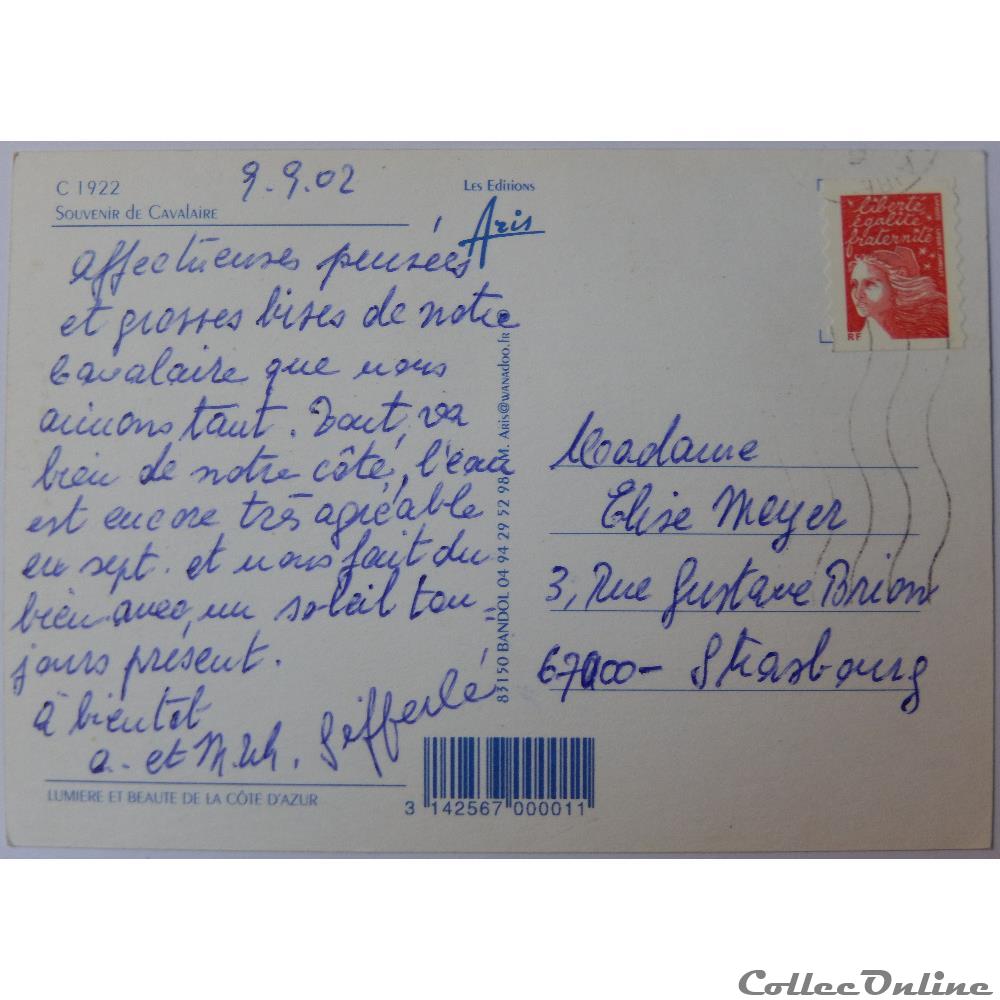 C 1922
SOUVENIR DE CAVALAIRE
9.9.02
Les Editions
Aris
affectueuses pensées
et grosses bises de notre
Cavalaire que nous
aimons tant. Tout va
bien de notre côté, l'eau
est encore très agréable
en sept. et nous fait du
bien avec un soleil tou
jours présent.
à bientot
a. et M.
LUMIERE ET BEAUTE DE LA CÔTE D'AZUR
3 142567 000011
83150 BANDOL 04 94 29 52 98 M. ARIS@WANADOO.FR
liberté
égalité
fraternité
RF
Madame
Elise Meyer
3, Rue Gustave Brion
67000 - Strasbourg
CollecOnline